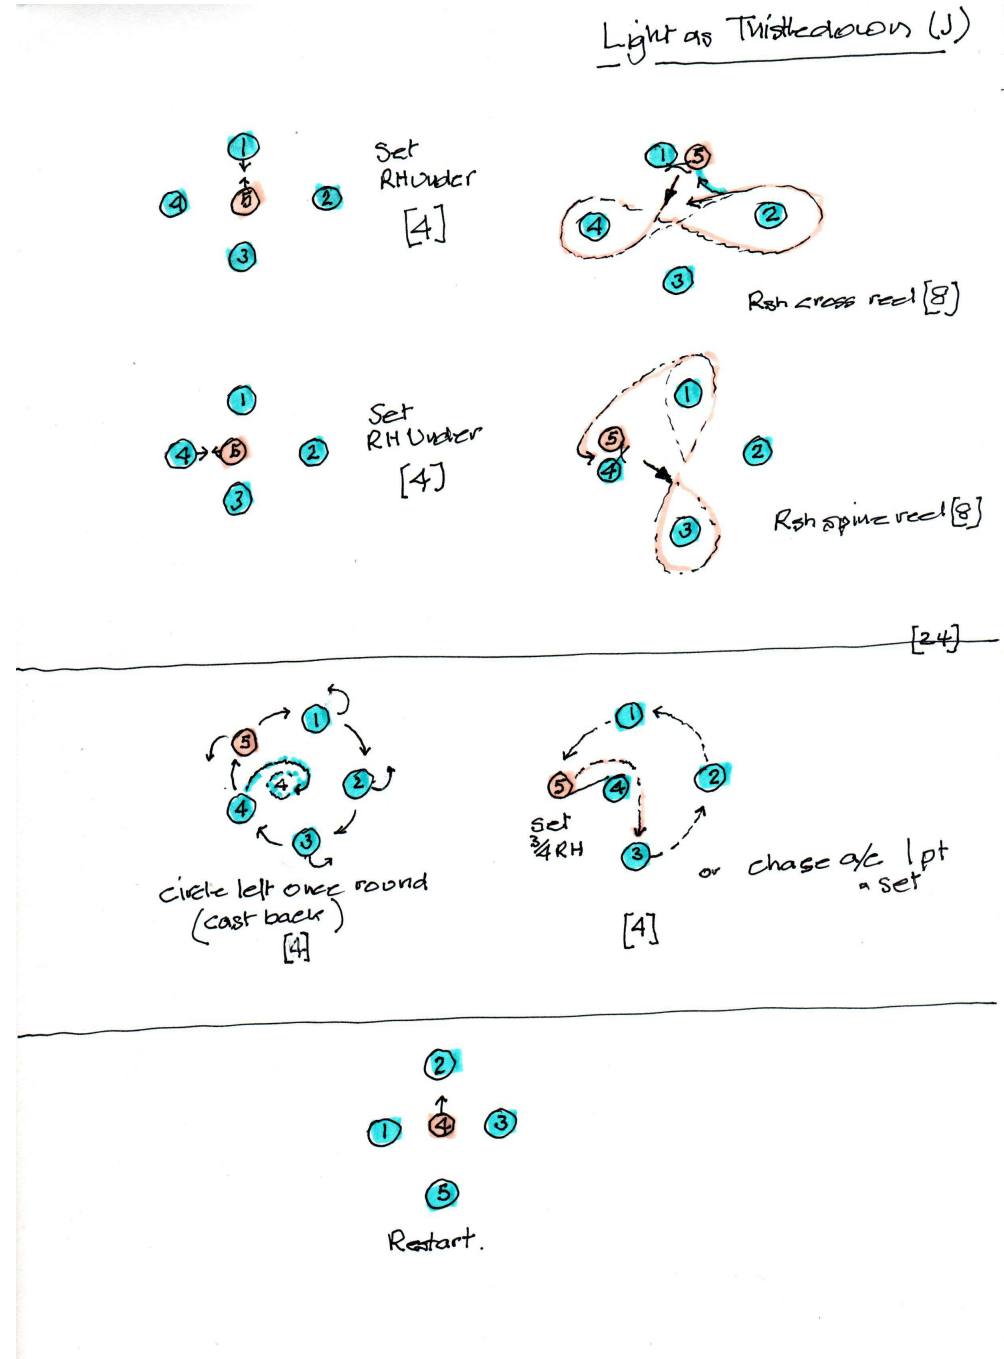 Light as Thistledown (J)
1
4 5 2
3
Set
RH Under
[4]
1 5
4 2
3
Rsh cross reel [8]
1
4 5 2
3
Set
RH Under
[4]
1
5
4 2
3
Rsh spine reel [8]
[24]
1
5
4 4 2
3
circle left once round
(cast back)
[4]
1
5 4 2
3
set
3/4 RH
[4]
or chase a/c 1 pt
a set
2
1 4 3
5
Restart.